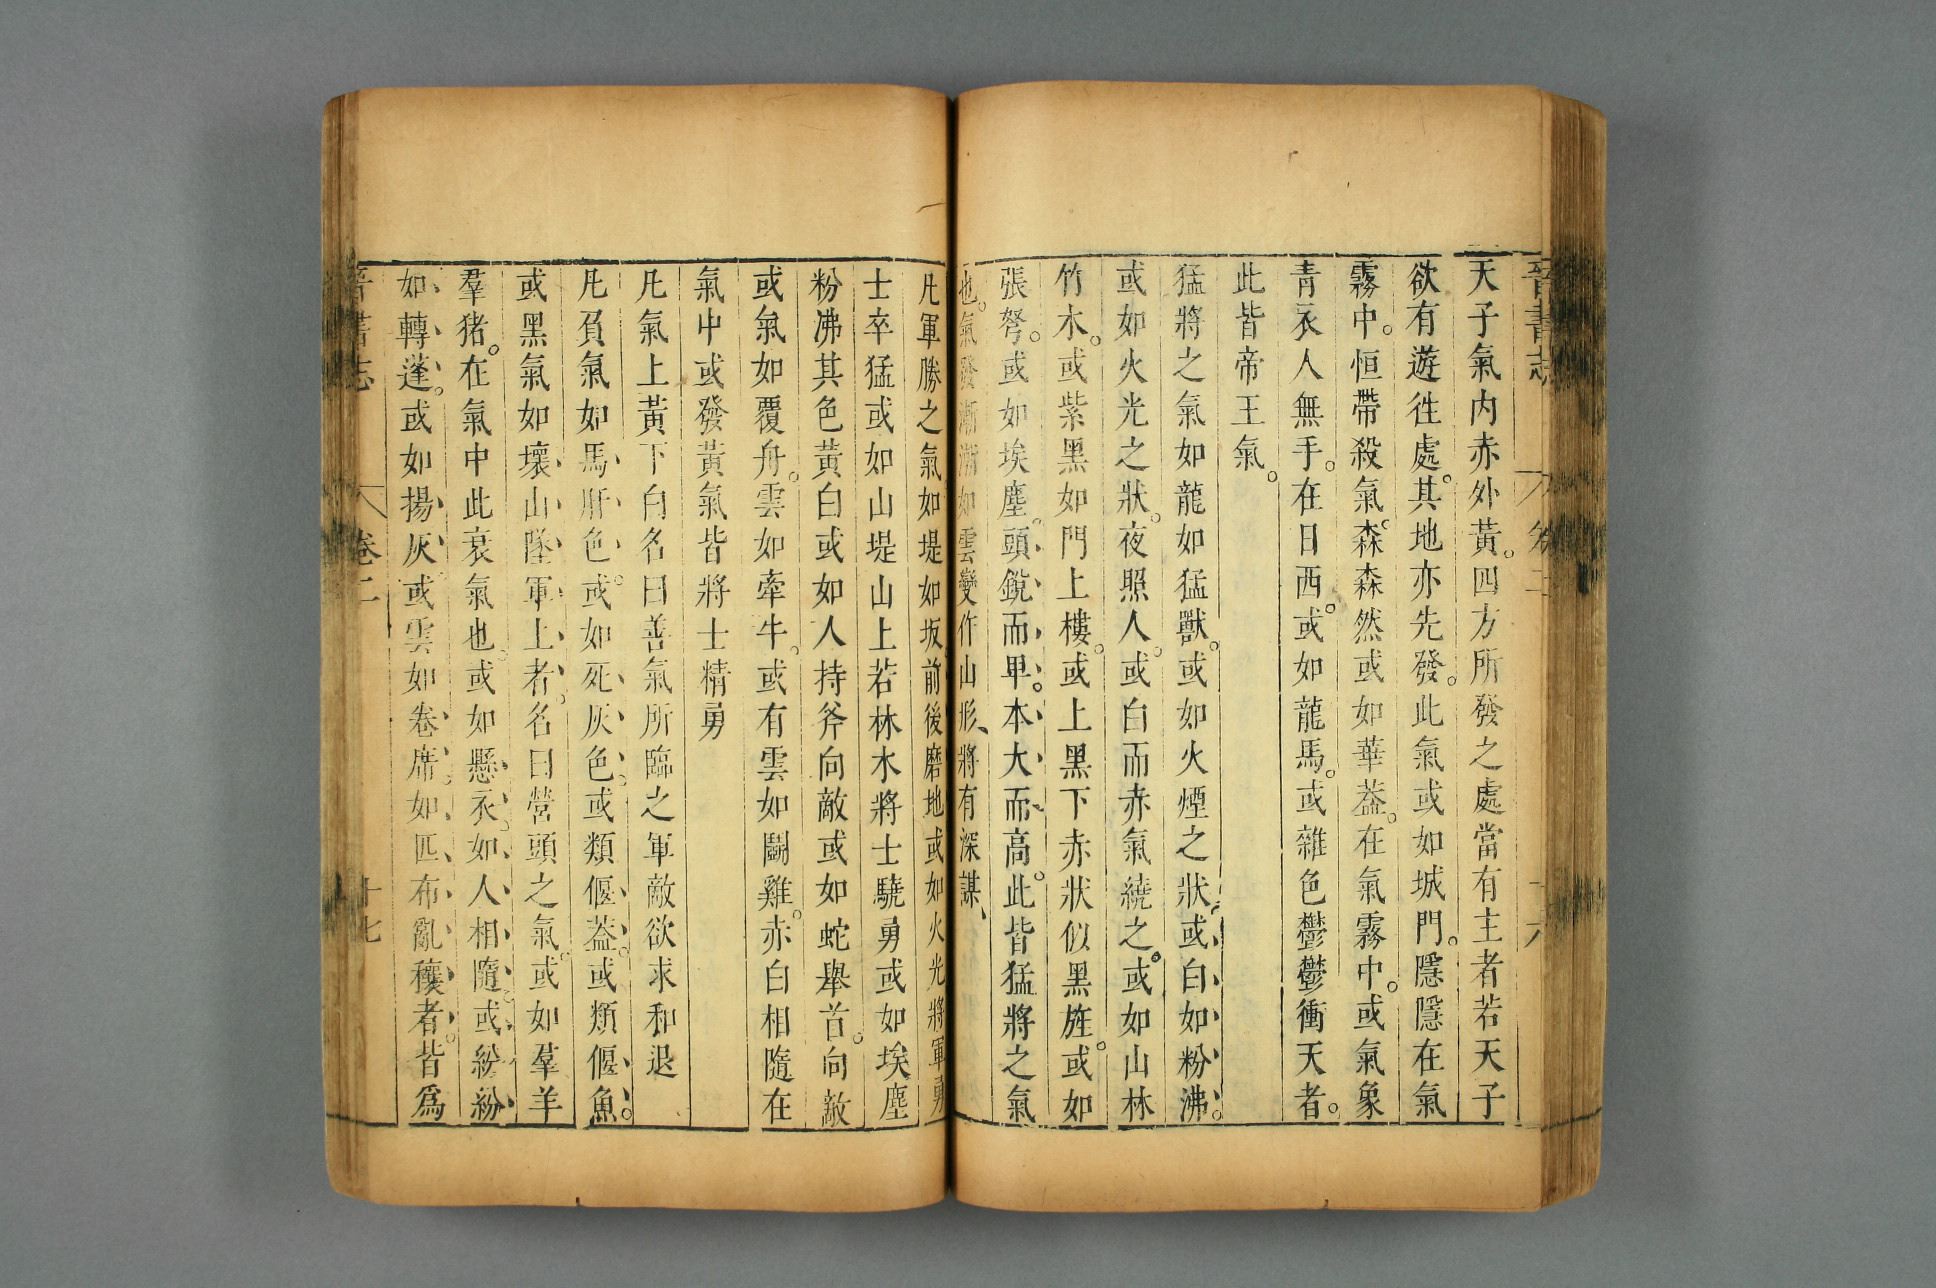 天子氣内赤外黃。四方所發之處當有主者若天子
欲有遊徃處。其地亦先發。此氣或如城門。隱隱在氣
霧中。恒帶殺氣。森森然或如華葢。在氣霧中。或氣象
青衣人無手。在日西。或如龍馬。或雜色鬱鬱衝天者。
此皆帝王氣。
猛將之氣如龍如猛獸。或如火煙之狀、或、白、如、粉、沸。
或如火光之狀。夜照人。或白而赤氣繞之。或如山林
竹木。或紫黑如門上樓。或上黑下赤狀似黑旌。或如
張弩。或如埃塵。頭、銳、而、卑。本、大、而、高。此皆猛將之氣
也。氣發漸漸如雲變作山形、將有深謀、
凡軍勝之氣如堤如坂。前後磨地或如火光將軍勇
士卒猛或如山堤山上若林木將士驍勇或如埃塵
粉沸其色黃白或如人持斧向敵或如蛇舉首。向敵
或氣如覆舟。雲如牽牛。或有雲如鬭雞。赤白相隨在
氣中或發黃氣皆將士精勇
凡氣上黃下白名曰善氣所臨之軍敵欲求和退
凡負氣如、馬、肝、色。或、如、死、灰、色。或類、偃、葢。或類、偃、魚。
或黑氣如、壞、山、墜、軍、上、者。名曰營頭之氣。或如羣羊
羣猪。在氣中此衰氣也。或如、懸、衣。如、人、相、隨。或、紛、紛、
如、轉、蓬。或、如、揚、灰。或雲、如、卷、席。如、匹、布、亂、穰、者。皆爲
晉書志
卷二
十七